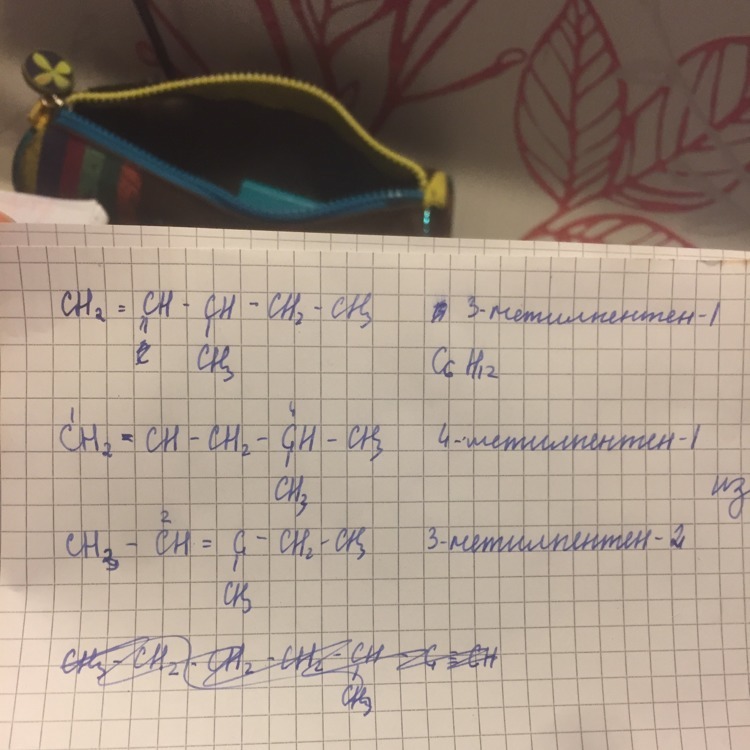 CH₂ = CH - CH - CH₂ - CH₃ 3-метилпентен-1
CH₃ C₆H₁₂
1 4
CH₂ = CH - CH₂ - CH - CH₃ 4-метилпентен-1
CH₃
из
2
CH₃ - CH = C - CH₂ - CH₃ 3-метилпентен-2
CH₃
CH₃ - CH₂ - CH₂ - CH₂ - CH - C ≡ CH
CH₃